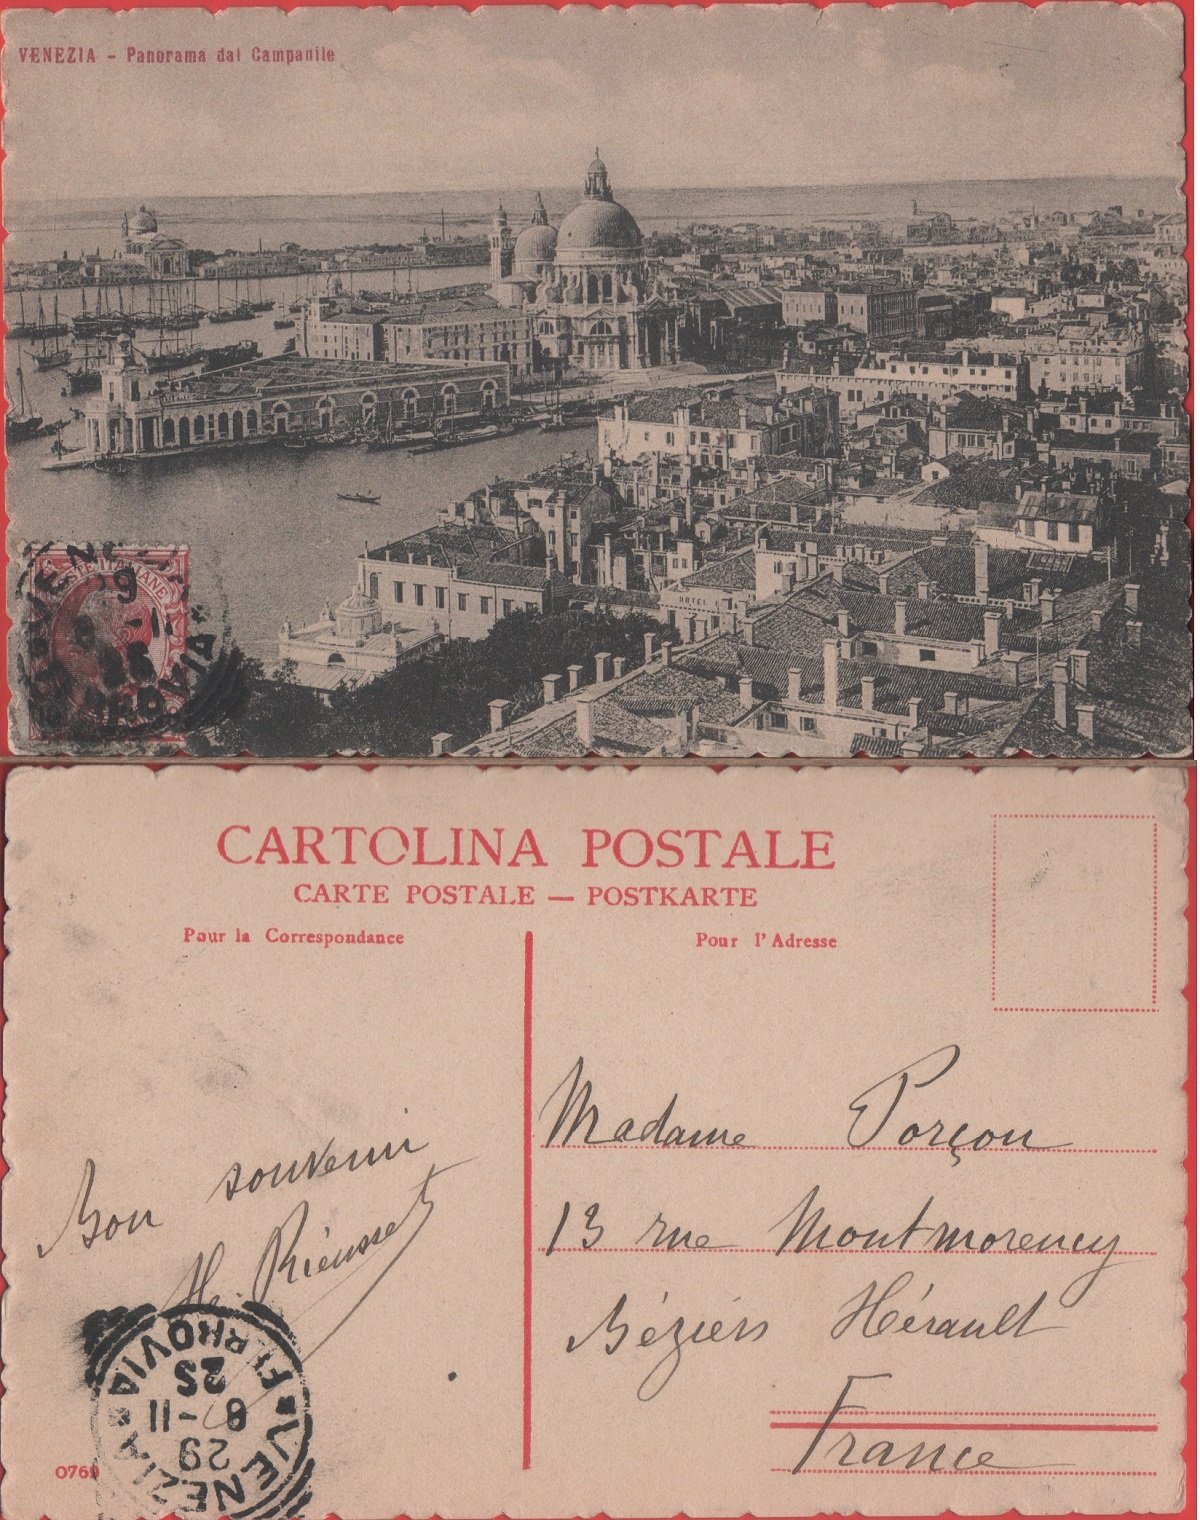 VENEZIA - Panorama dal Campanile
HÔTEL
POSTE ITALIANE
CARTOLINA POSTALE
CARTE POSTALE — POSTKARTE
Pour la Correspondance
Pour l'Adresse
Bon souvenir
H. Rieusset
Madame Porçon
13 rue Montmorency
Béziers Hérault
France
0769
VENEZIA
FERROVIA
29
8-11
2S